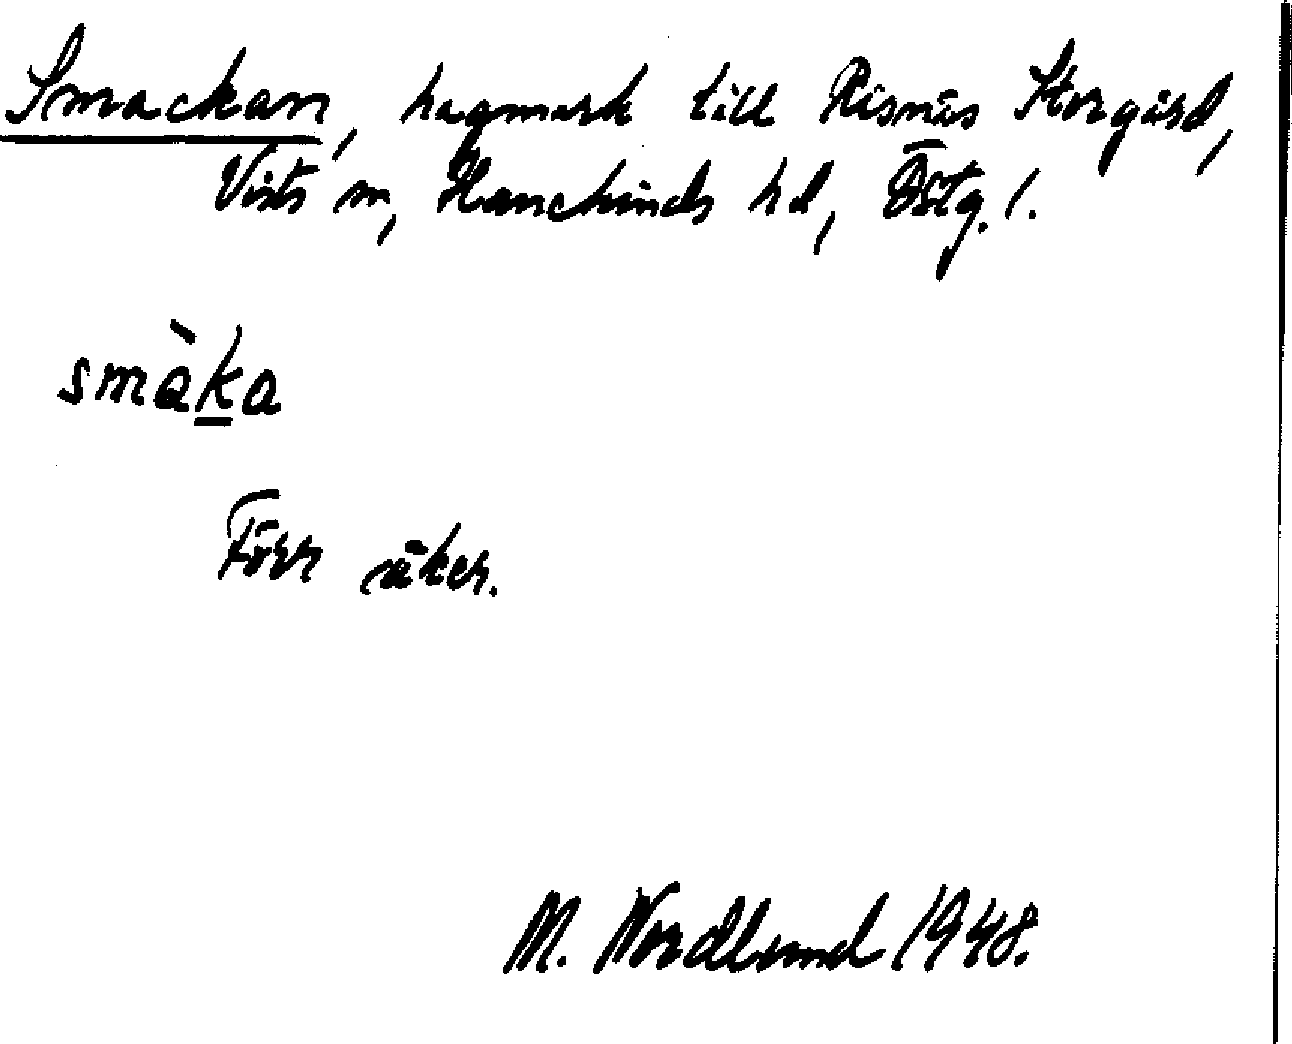 Smackan, hagmark till Risnäs Storgård,
Vists sn, Hanekinds hd, Östg. l.
smàka
Förr åker.
M. Nordlund 1948.